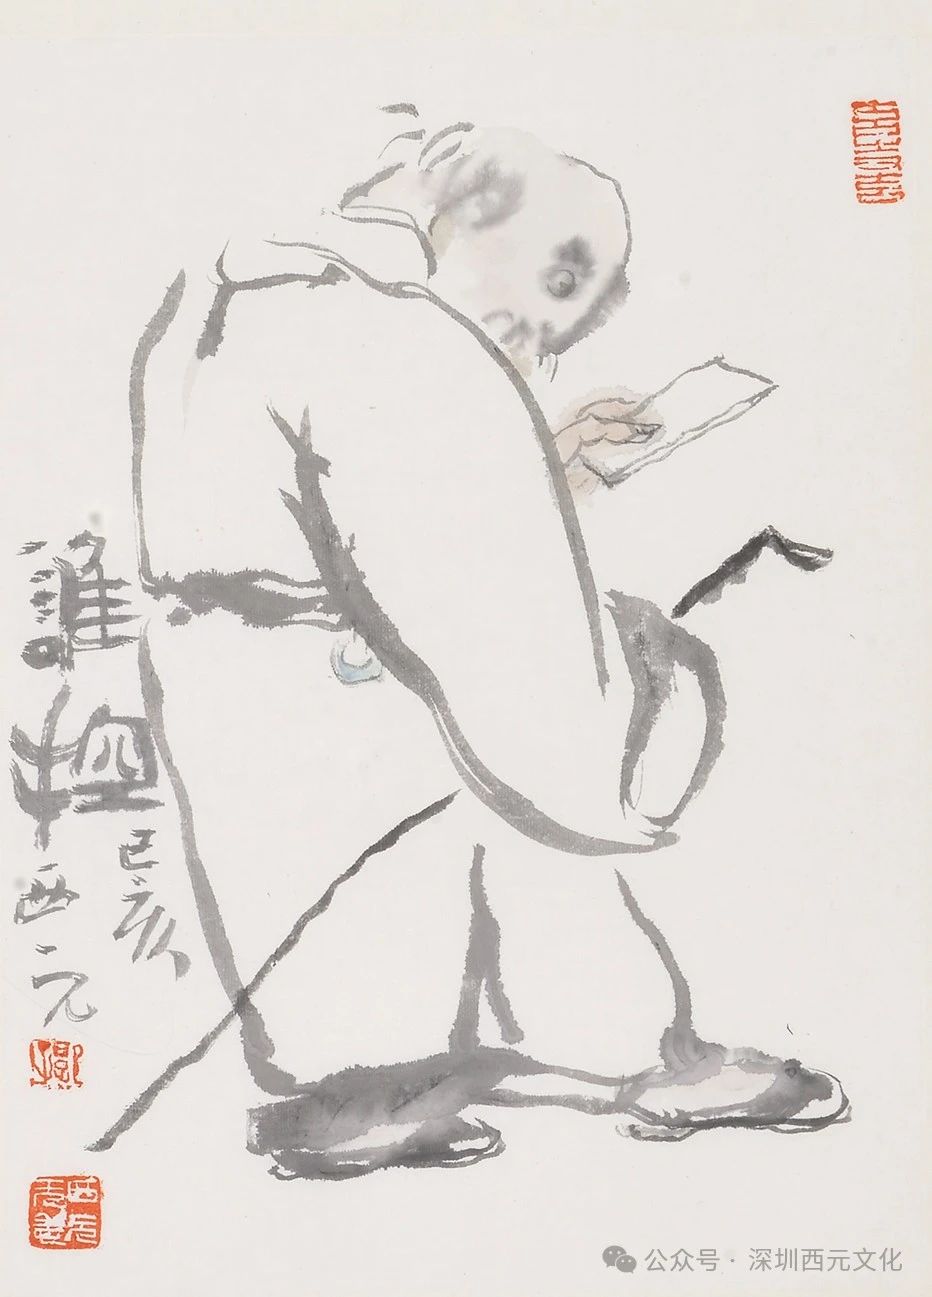 誰控
己亥
西元
公众号 · 深圳西元文化